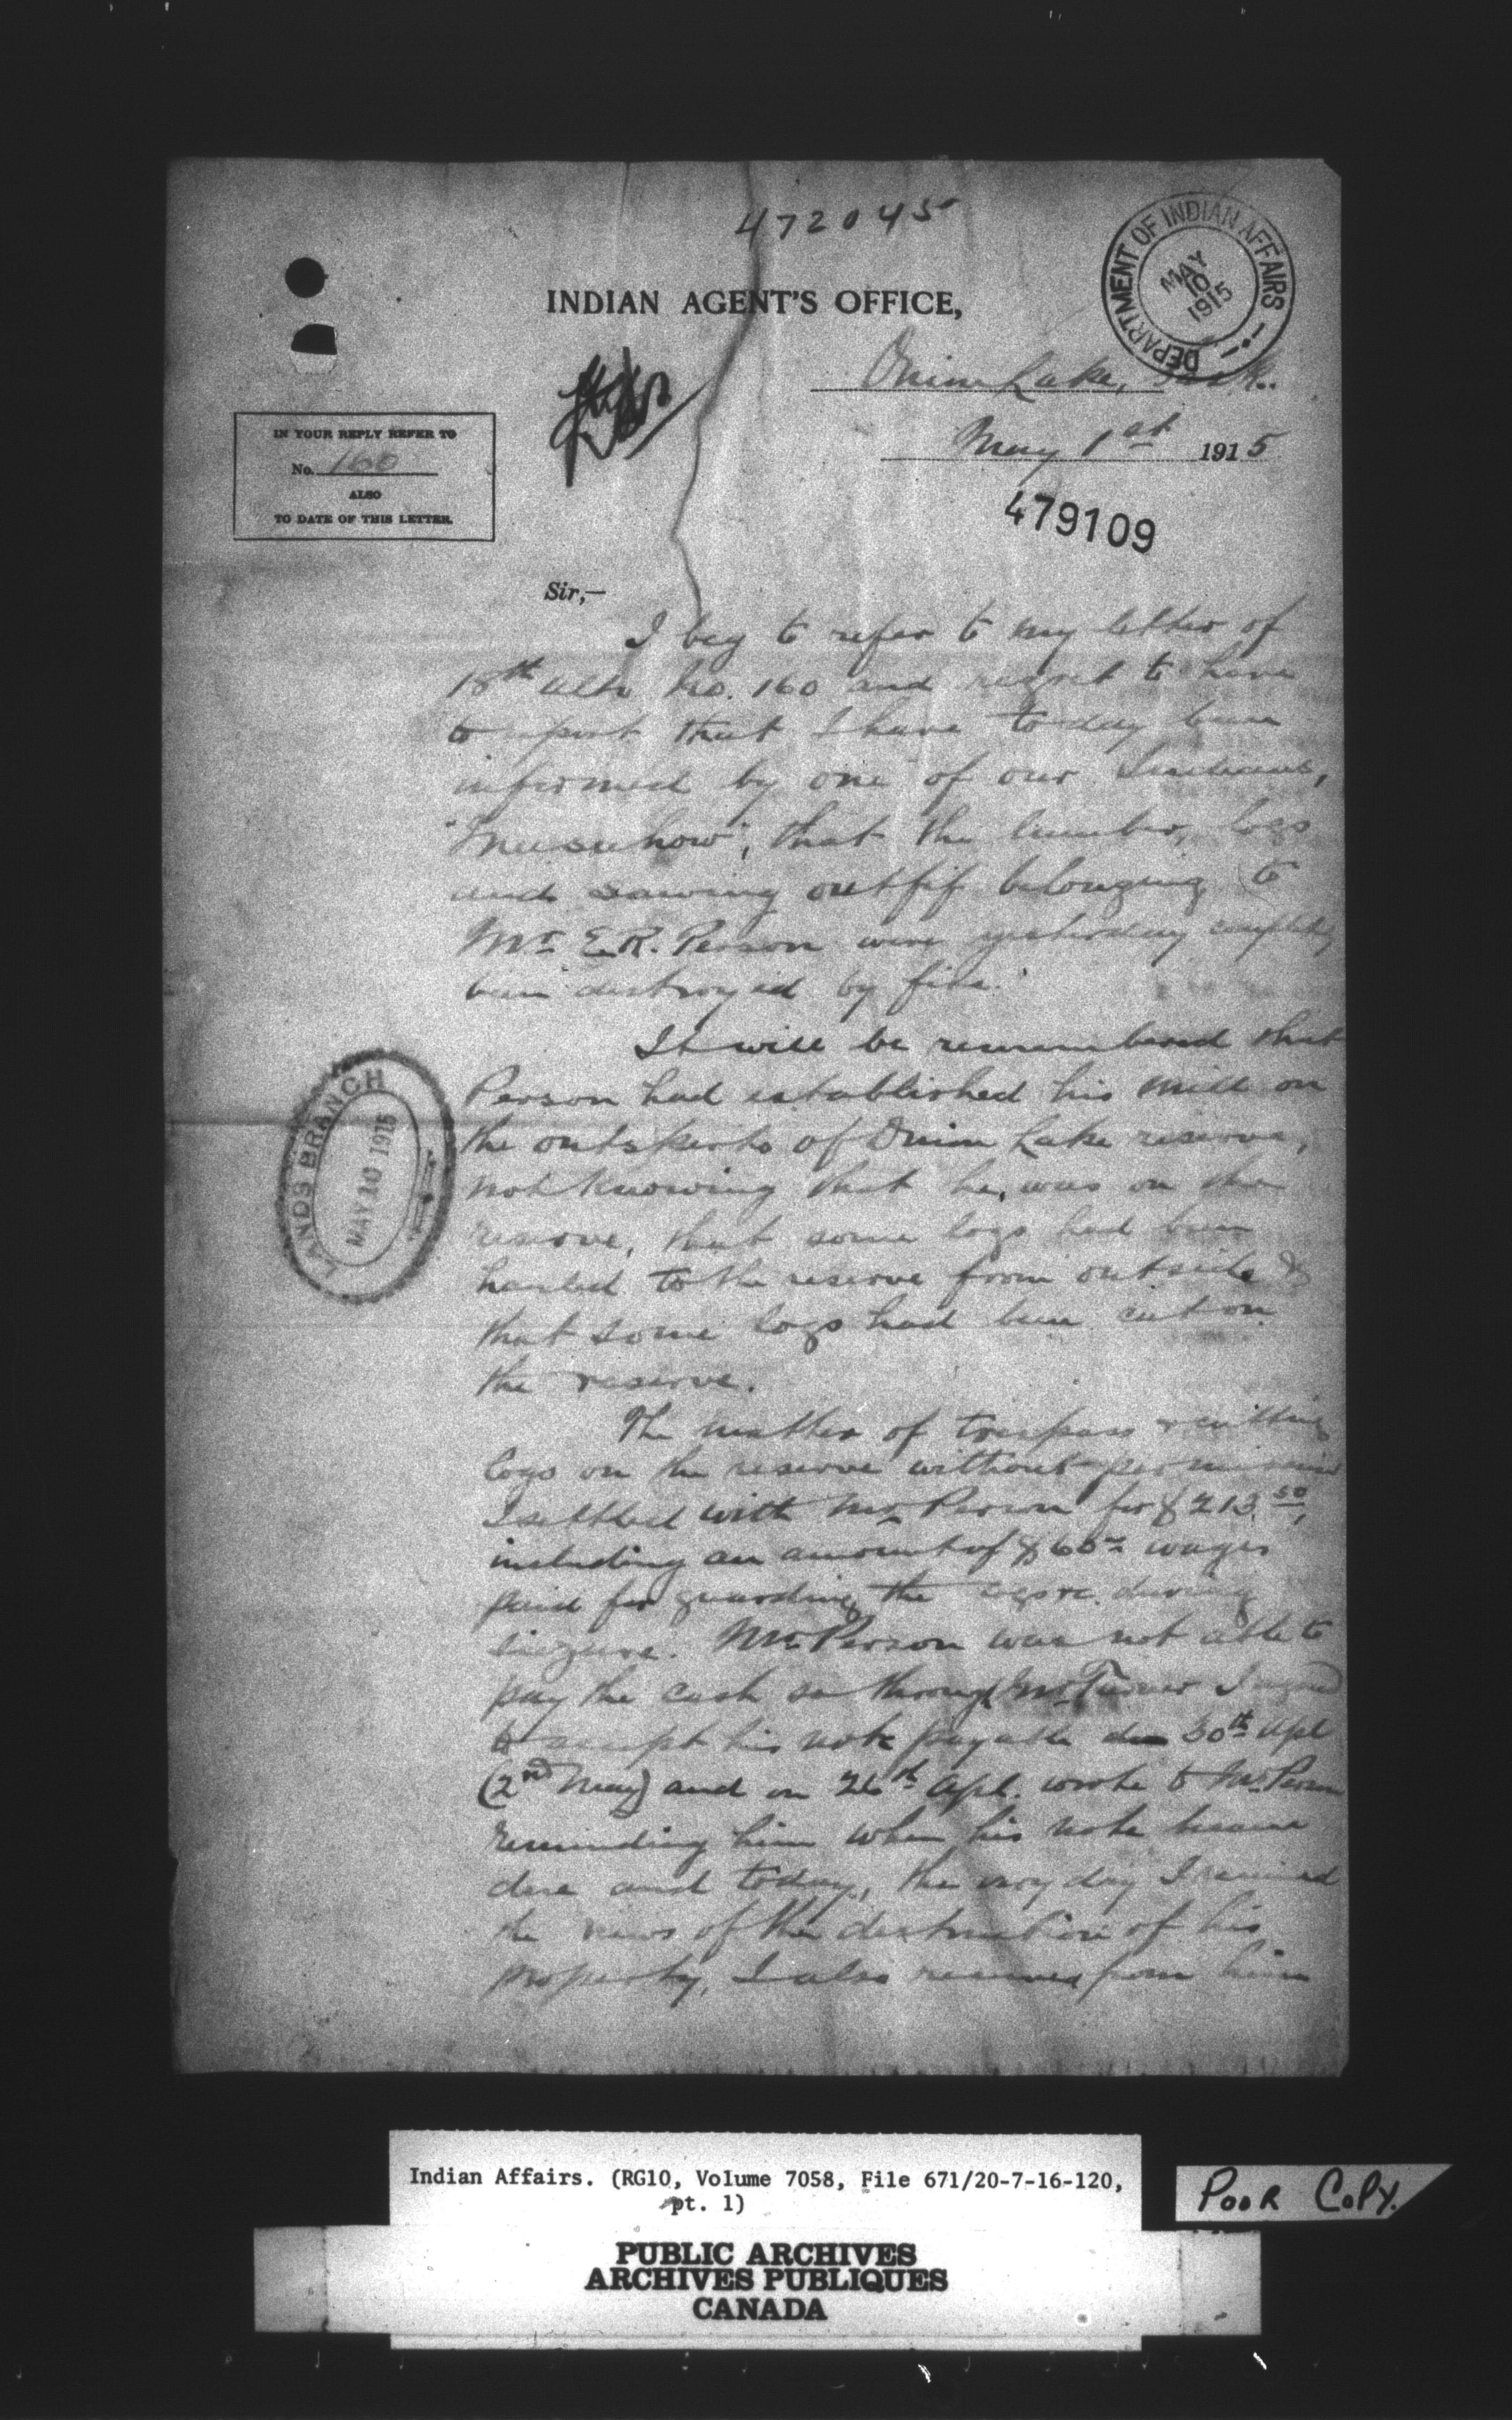 472045
DEPARTMENT OF INDIAN AFFAIRS
MAY
10
1915
INDIAN AGENT'S OFFICE,
Onion Lake, Sask.
May 1st 1915
IN YOUR REPLY REFER TO
No. 160
ALSO
TO DATE OF THIS LETTER.
479109
Sir,—
I beg to refer to my letter of
18th ulto No. 160 and regret to have
to report that I have today been
informed by one of our Indians,
that the lumber, logs
and sawing outfit belonging to
Mr E.R. Person were yesterday completely
been destroyed by fire.
It will be remembered that
Person had established his mill on
the outskirts of Onion Lake reserve,
not knowing that he was on the
reserve, that some logs had been
hauled to the reserve from outside &
that some logs had been cut on
the reserve.
The matter of trespass & cutting
logs on the reserve without permission
I settled with Mr Person for $213.50,
including an amount of wages
paid for guarding the logs &c. during
seizure. Mr Person was not able to
pay the cash so through Mr Turner I agreed
to accept his note payable due 30th Apl
(2nd May) and on 26th Apl. wrote to Mr Person
reminding him when his note became
due and today, the very day I received
the news of the destruction of his
property, I also received from him
LANDS BRANCH
MAY 10 1915
Indian Affairs. (RG10, Volume 7058, File 671/20-7-16-120,
pt. 1)
POOR COPY.
PUBLIC ARCHIVES
ARCHIVES PUBLIQUES
CANADA